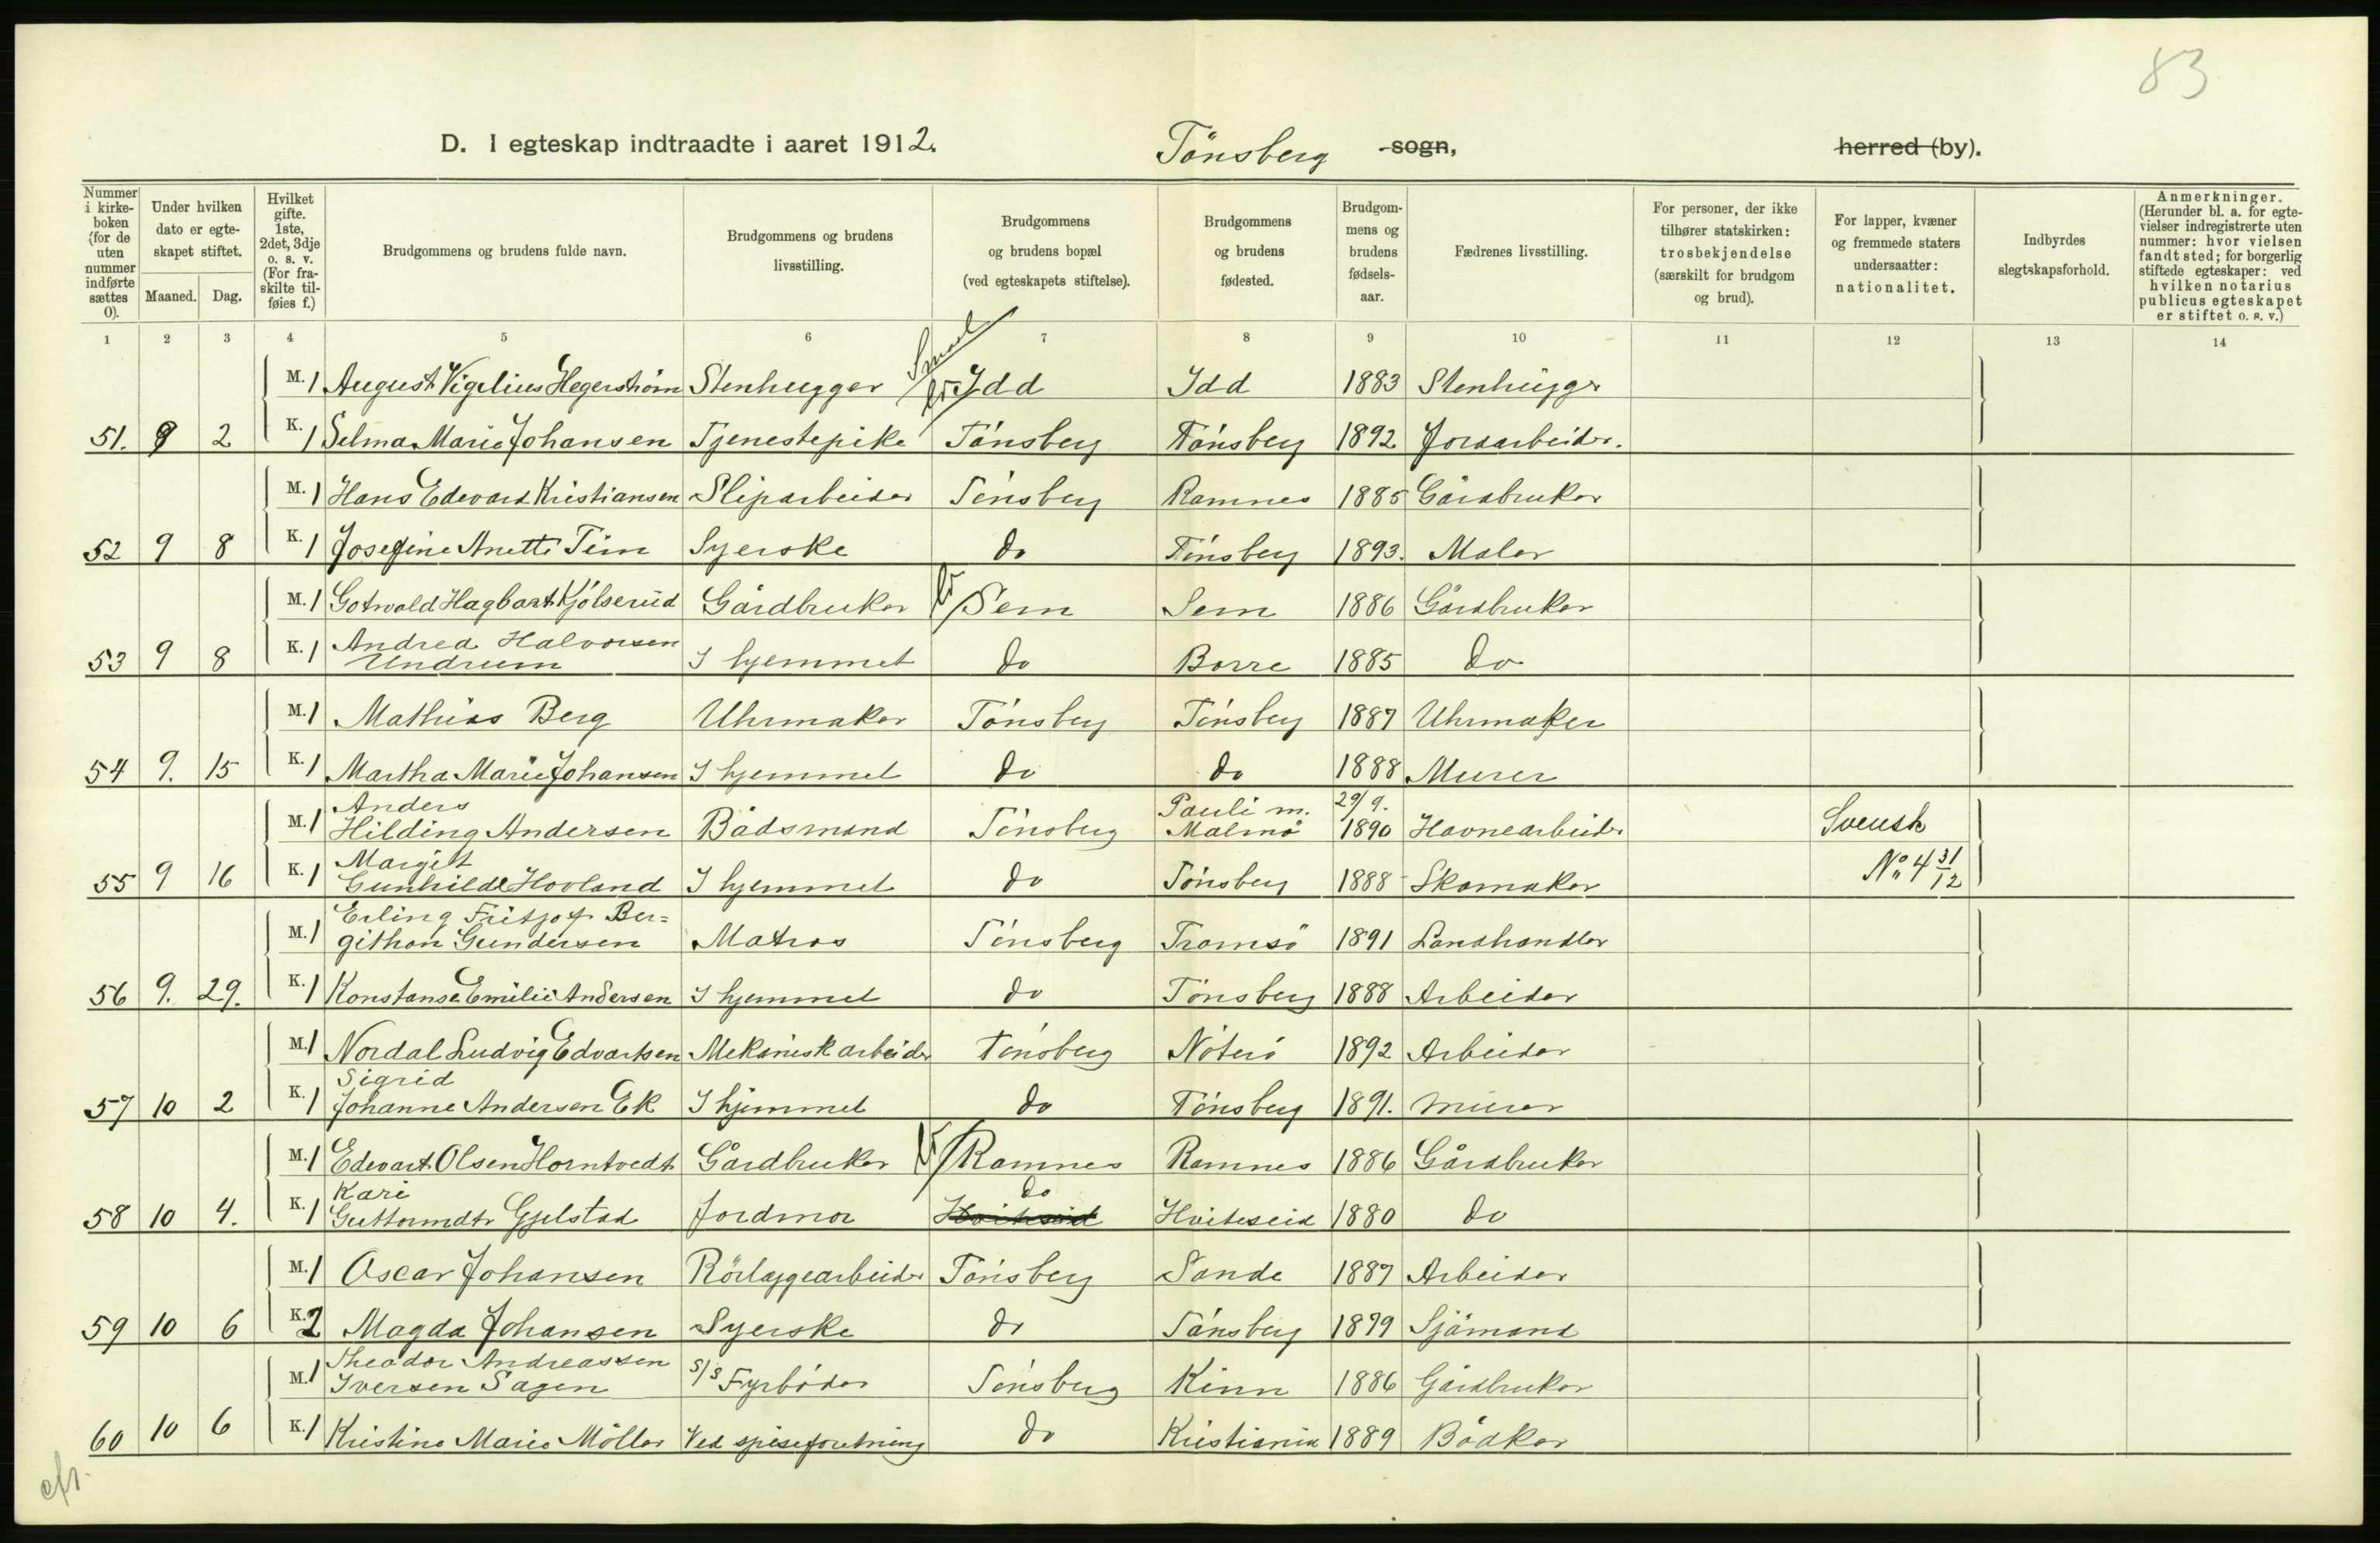 83
D. I egteskap indtraadte i aaret 1912.
Tönsberg sogn, herred (by).
Nummer i kirke-boken (for de uten nummer indførte sættes 0).
Under hvilken dato er egte-skapet stiftet.
Maaned. Dag.
Hvilket gifte. 1ste, 2det, 3dje o. s. v. (For fra-skilte til-føies f.)
Brudgommens og brudens fulde navn.
Brudgommens og brudens livsstilling.
Brudgommens og brudens bopæl (ved egteskapets stiftelse).
Brudgommens og brudens fødested.
Brudgom-mens og brudens fødsels-aar.
Fædrenes livsstilling.
For personer, der ikke tilhører statskirken: trosbekjendelse (særskilt for brudgom og brud).
For lapper, kvæner og fremmede staters undersaatter: nationalitet.
Indbyrdes slegtskapsforhold.
Anmerkninger. (Herunder bl. a. for egte-vielser indregistrerte uten nummer: hvor vielsen fandt sted; for borgerlig stiftede egteskaper: ved hvilken notarius publicus egteskapet er stiftet o. s. v.)
1 2 3 4 5 6 7 8 9 10 11 12 13 14
M. 1 August Vigelius Hegerström Stenhugger Idd Idd 1883 Stenhugger
51. 9 2 K. 1 Selma Marie Johansen Tjenestepike Tönsberg Tönsberg 1892 Jordarbeider.
M. 1 Hans Edevard Kristiansen Sliparbeider Tönsberg Ramnes 1885 Gårdbruker
52 9 8 K. 1 Josefine Anette Tim Syerske do Tönsberg 1893. Maler
M. 1 Gotwald Hagbart Kjölserud Gårdbruker Sem Sem 1886 Gårdbruker
53 9 8 K. 1 Andrea Halvorsen
Undrum I hjemmet do Borre 1885 do
M. 1 Mathias Berg Uhrmaker Tönsberg Tönsberg 1887 Uhrmaker
54 9. 15 K. 1 Martha Marie Johansen I hjemmet do do 1888 Murer
Anders Pauli m. 29/9.
M. 1 Hilding Andersen Bådsmand Tönsberg Malmö 1890 Havnearbeider Svensk
Margit
55 9 16 K. 1 Gunhilde Hovland I hjemmet do Tönsberg 1888 Skomaker No. 4 31/12
Erling Fritjof Ber=
M. 1 githon Gundersen Matros Tönsberg Tromsö 1891 Landhandler
56 9. 29. K. 1 Konstanse Emilie Andersen I hjemmet do Tönsberg 1888 Arbeider
M. 1 Nordal Ludvig Edvartsen Mekanisk arbeider Tönsberg Nöterö 1892 Arbeider
Sigrid
57 10 2 K. 1 Johanne Andersen Ek I hjemmet do Tönsberg 1891. Murer
M. 1 Edevart Olsen Horntvedt Gårdbruker Ramnes Ramnes 1886 Gårdbruker
Kari do
58 10 4. K. 1 Guttormdtr Gjelstad Jordmor Hviteseid Hviteseid 1880 do
M. 1 Oscar Johansen Rörlæggearbeider Tönsberg Sande 1887 Arbeider
59 10 6 K. 2 Magda Johansen Syerske do Tönsberg 1879 Sjömand
Theodor Andreassen
M. 1 Iversen Sagen S/S Fyrböder Tönsberg Kinn 1886 Gårdbruker
60 10 6 K. 1 Kristine Marie Möller Ved spiseforetning do Kristiania 1889 Bödker
cfr.